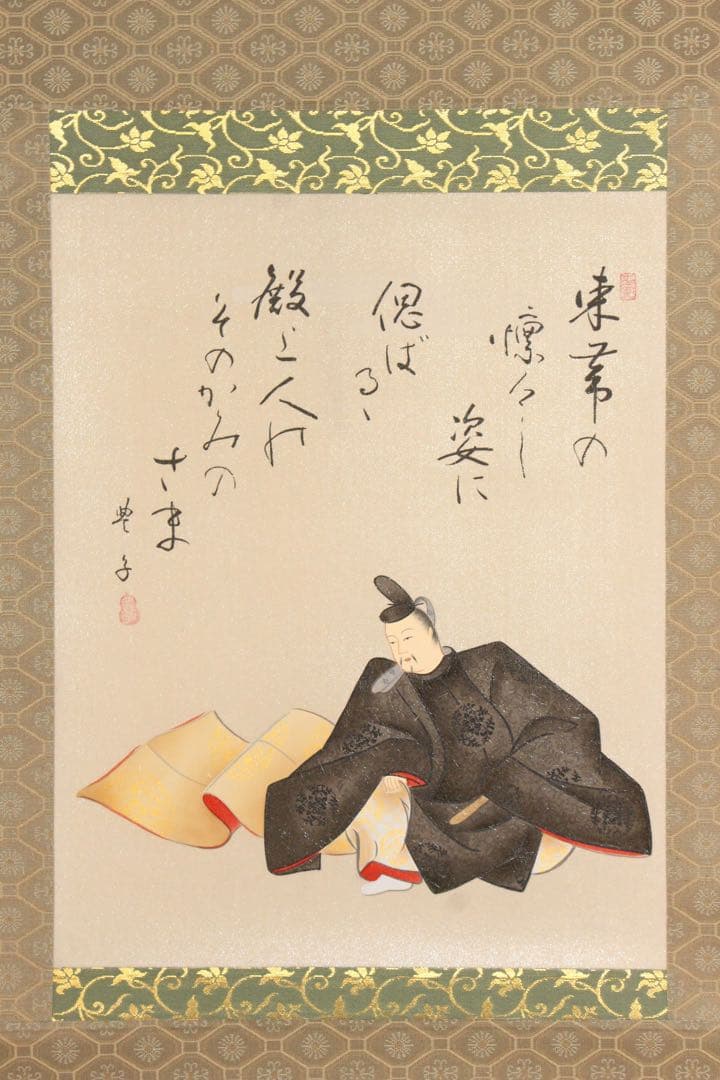 束帯の
凛々し
姿に
偲ばるゝ
殿上人の
そのかみの
さま
豊子